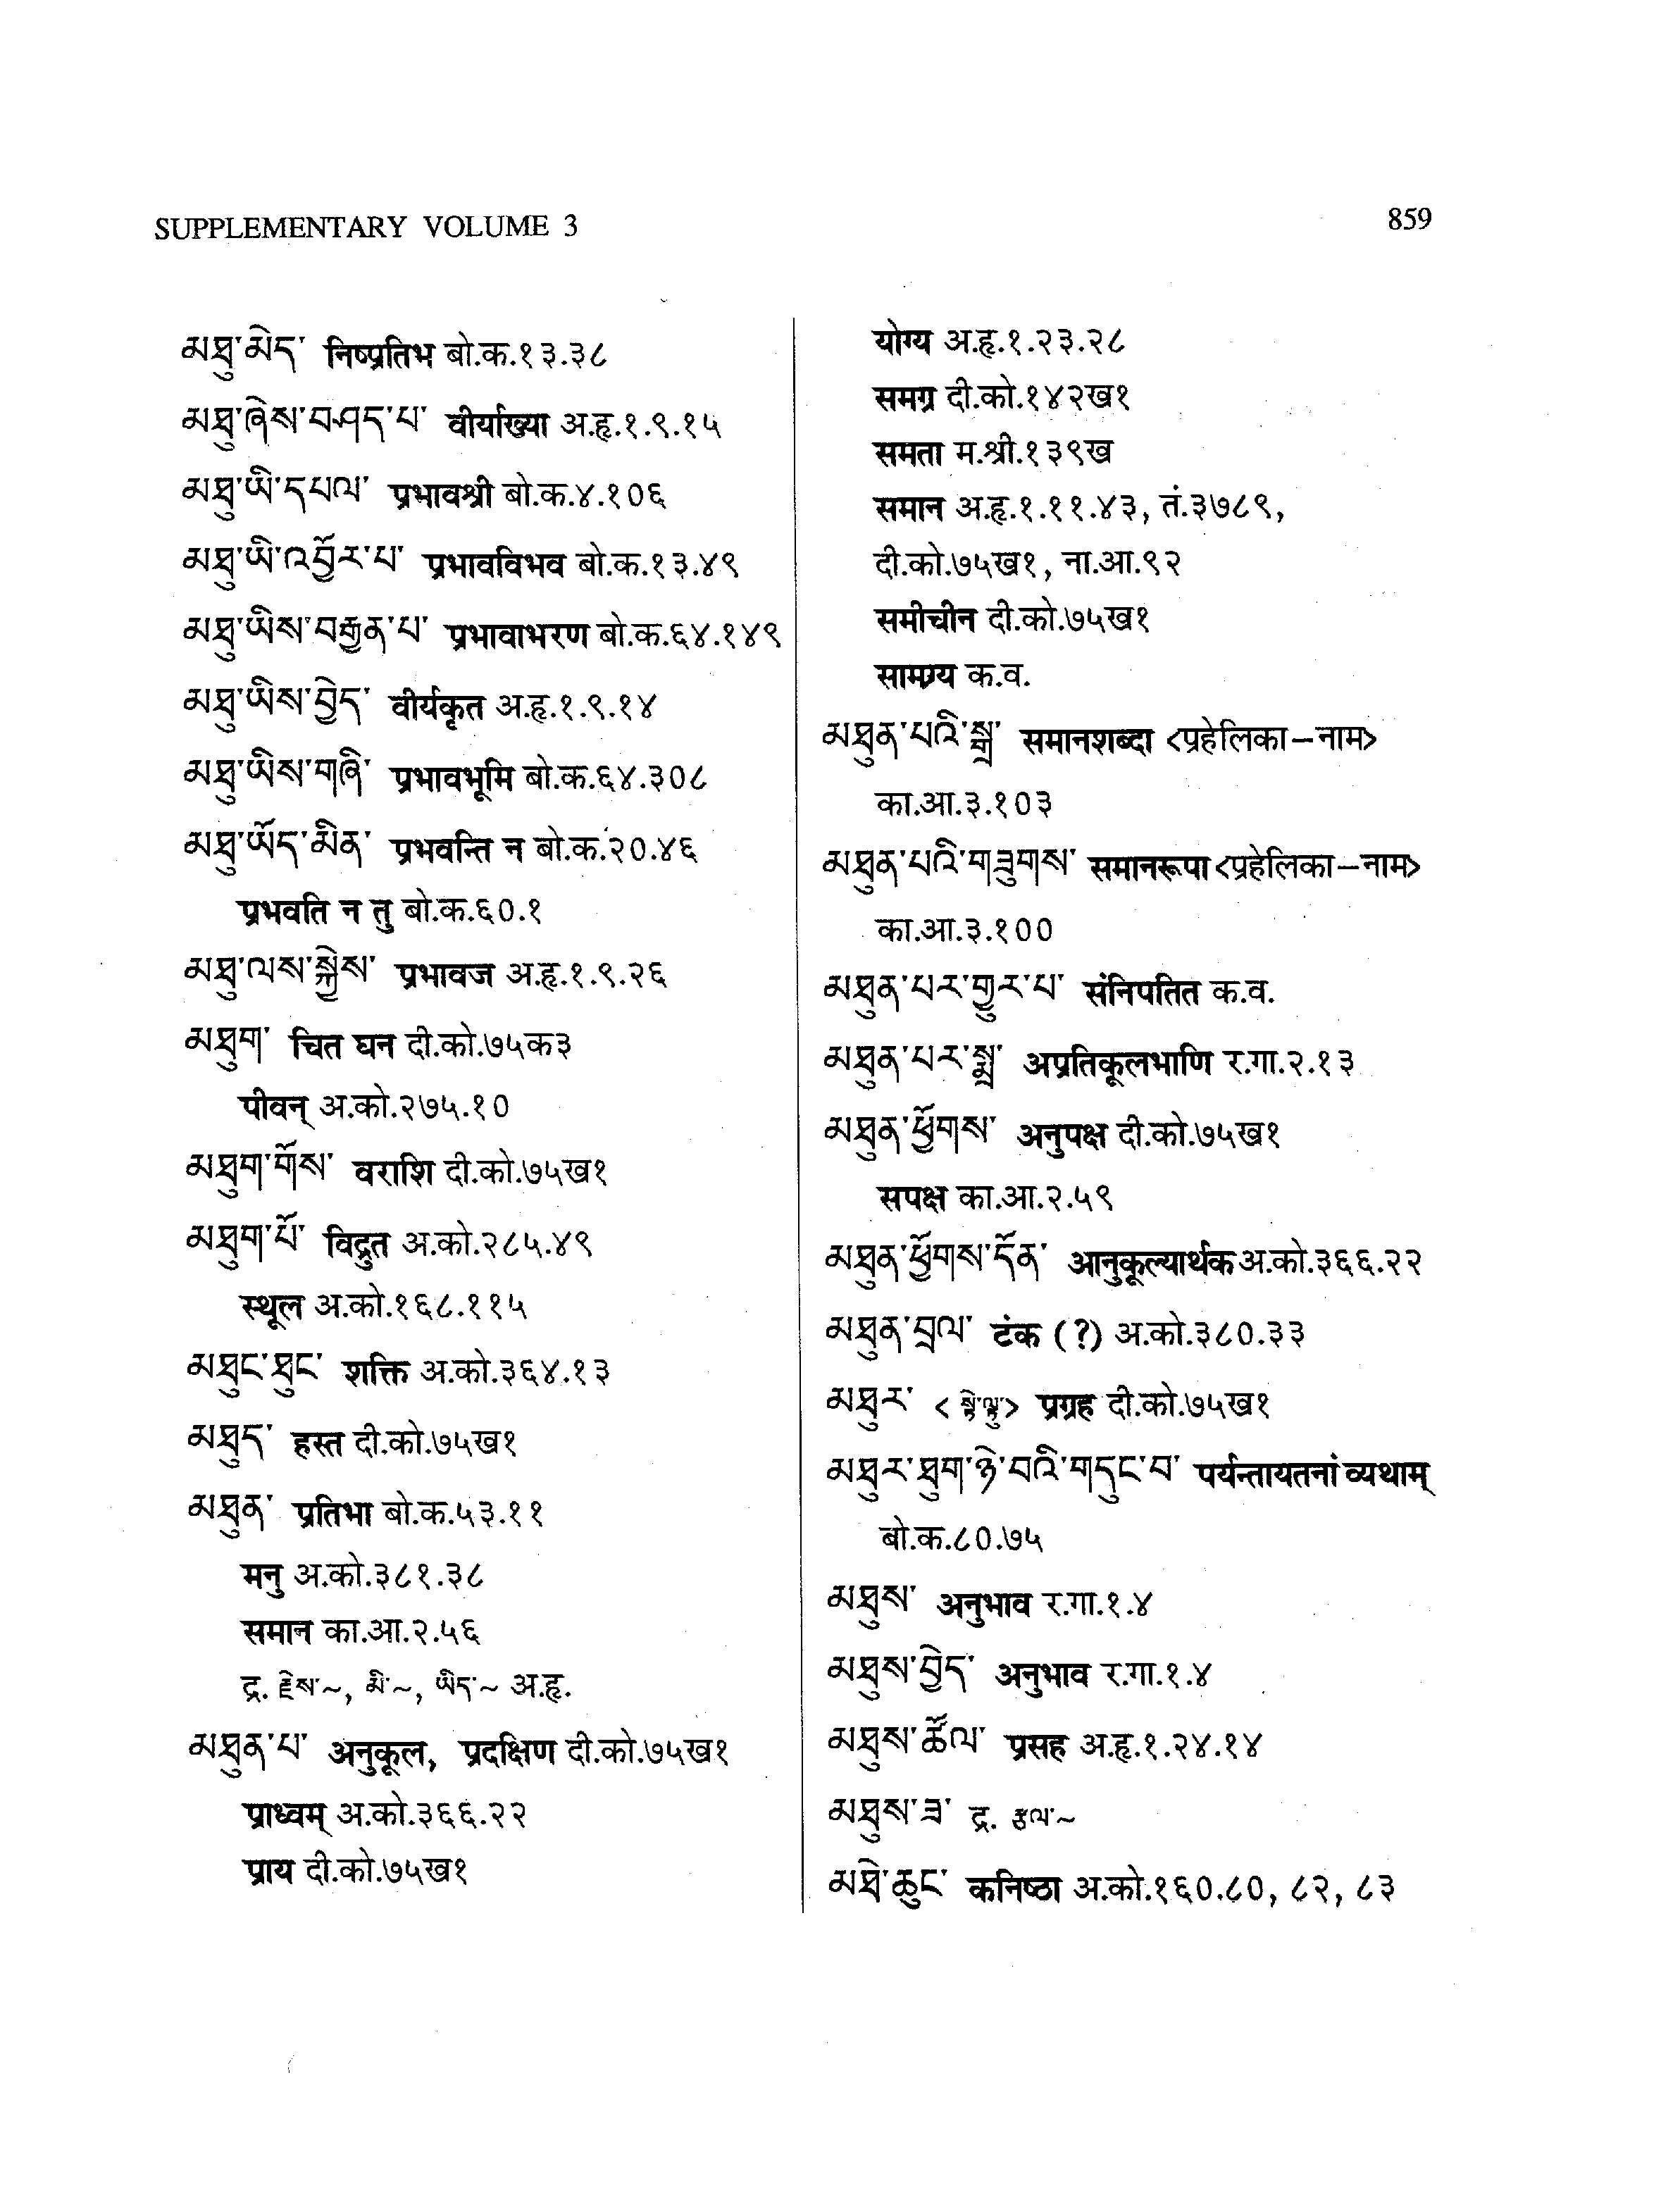 SUPPLEMENTARY VOLUME 3
859
མཐུ་མེད་ निष्प्रतिभ बो.क.१३.३८
མཐུ་ཞེས་བཤད་པ་ वीर्याख्या अ.हृ.१.९.१५
མཐུ་ཡི་དཔལ་ प्रभावश्री बो.क.४.१०६
མཐུ་ཡི་འབྱོར་པ་ प्रभावविभव बो.क.१३.४९
མཐུ་ཡིས་བརྒྱན་པ་ प्रभावाभरण बो.क.६४.१४९
མཐུ་ཡིས་བྱེད་ वीर्यकृत अ.हृ.१.९.१४
མཐུ་ཡིས་གཞི་ प्रभावभूमि बो.क.६४.३०८
མཐུ་ཡོད་མིན་ प्रभवन्ति न बो.क.२०.४६
प्रभवति न तु बो.क.६०.१
མཐུ་ལས་སྐྱེས་ प्रभावज अ.हृ.१.९.२६
མཐུག་ चित घन दी.को.७५क३
पीवन् अ.को.२७५.१०
མཐུག་གོས་ वराशि दी.को.७५ख१
མཐུག་པོ་ विद्रुत अ.को.२८५.४९
स्थूल अ.को.१६८.११५
མཐུང་ཐུང་ शक्ति अ.को.३६४.१३
མཐུད་ हस्त दी.को.७५ख१
མཐུན་ प्रतिभा बो.क.५३.११
मनु अ.को.३८१.३८
समान का.आ.२.५६
द्र. རྗེས་~, མི་~, ཡིད་~ अ.हृ.
མཐུན་པ་ अनुकूल, प्रदक्षिण दी.को.७५ख१
प्राध्वम् अ.को.३६६.२२
प्राय दी.को.७५ख१
योग्य अ.हृ.१.२३.२८
समग्र दी.को.१४२ख१
समता म.श्री.१३९ख
समान अ.हृ.१.११.४३, तं.३७८९,
दी.को.७५ख१, ना.आ.९२
समीचीन दी.को.७५ख१
सामग्र्य क.व.
མཐུན་པའི་སྒྲ་ समानशब्दा <प्रहेलिका–नाम>
का.आ.३.१०३
མཐུན་པའི་གཟུགས་ समानरूपा<प्रहेलिका–नाम>
का.आ.३.१००
མཐུན་པར་གྱུར་པ་ संनिपतित क.व.
མཐུན་པར་སྨྲ་ अप्रतिकूलभाणि र.गा.२.१३
མཐུན་ཕྱོགས་ अनुपक्ष दी.को.७५ख१
सपक्ष का.आ.२.५९
མཐུན་ཕྱོགས་དོན་ आनुकूल्यार्थक अ.को.३६६.२२
མཐུན་བྲལ་ टंक (?) अ.को.३८०.३३
མཐུར་ < > प्रग्रह दी.को.७५ख१
མཐུར་ཐུག་ཉེ་བའི་གདུང་བ་ पर्यन्तायतनां व्यथाम्
बो.क.८०.७५
མཐུས་ अनुभाव र.गा.१.४
མཐུས་བྱེད་ अनुभाव र.गा.१.४
མཐུས་ཚོལ་ प्रसह अ.हृ.१.२४.१४
མཐུས་ཟ་ द्र. རྩལ་~
མཐེ་ཆུང་ कनिष्ठा अ.को.१६०.८०, ८२, ८३